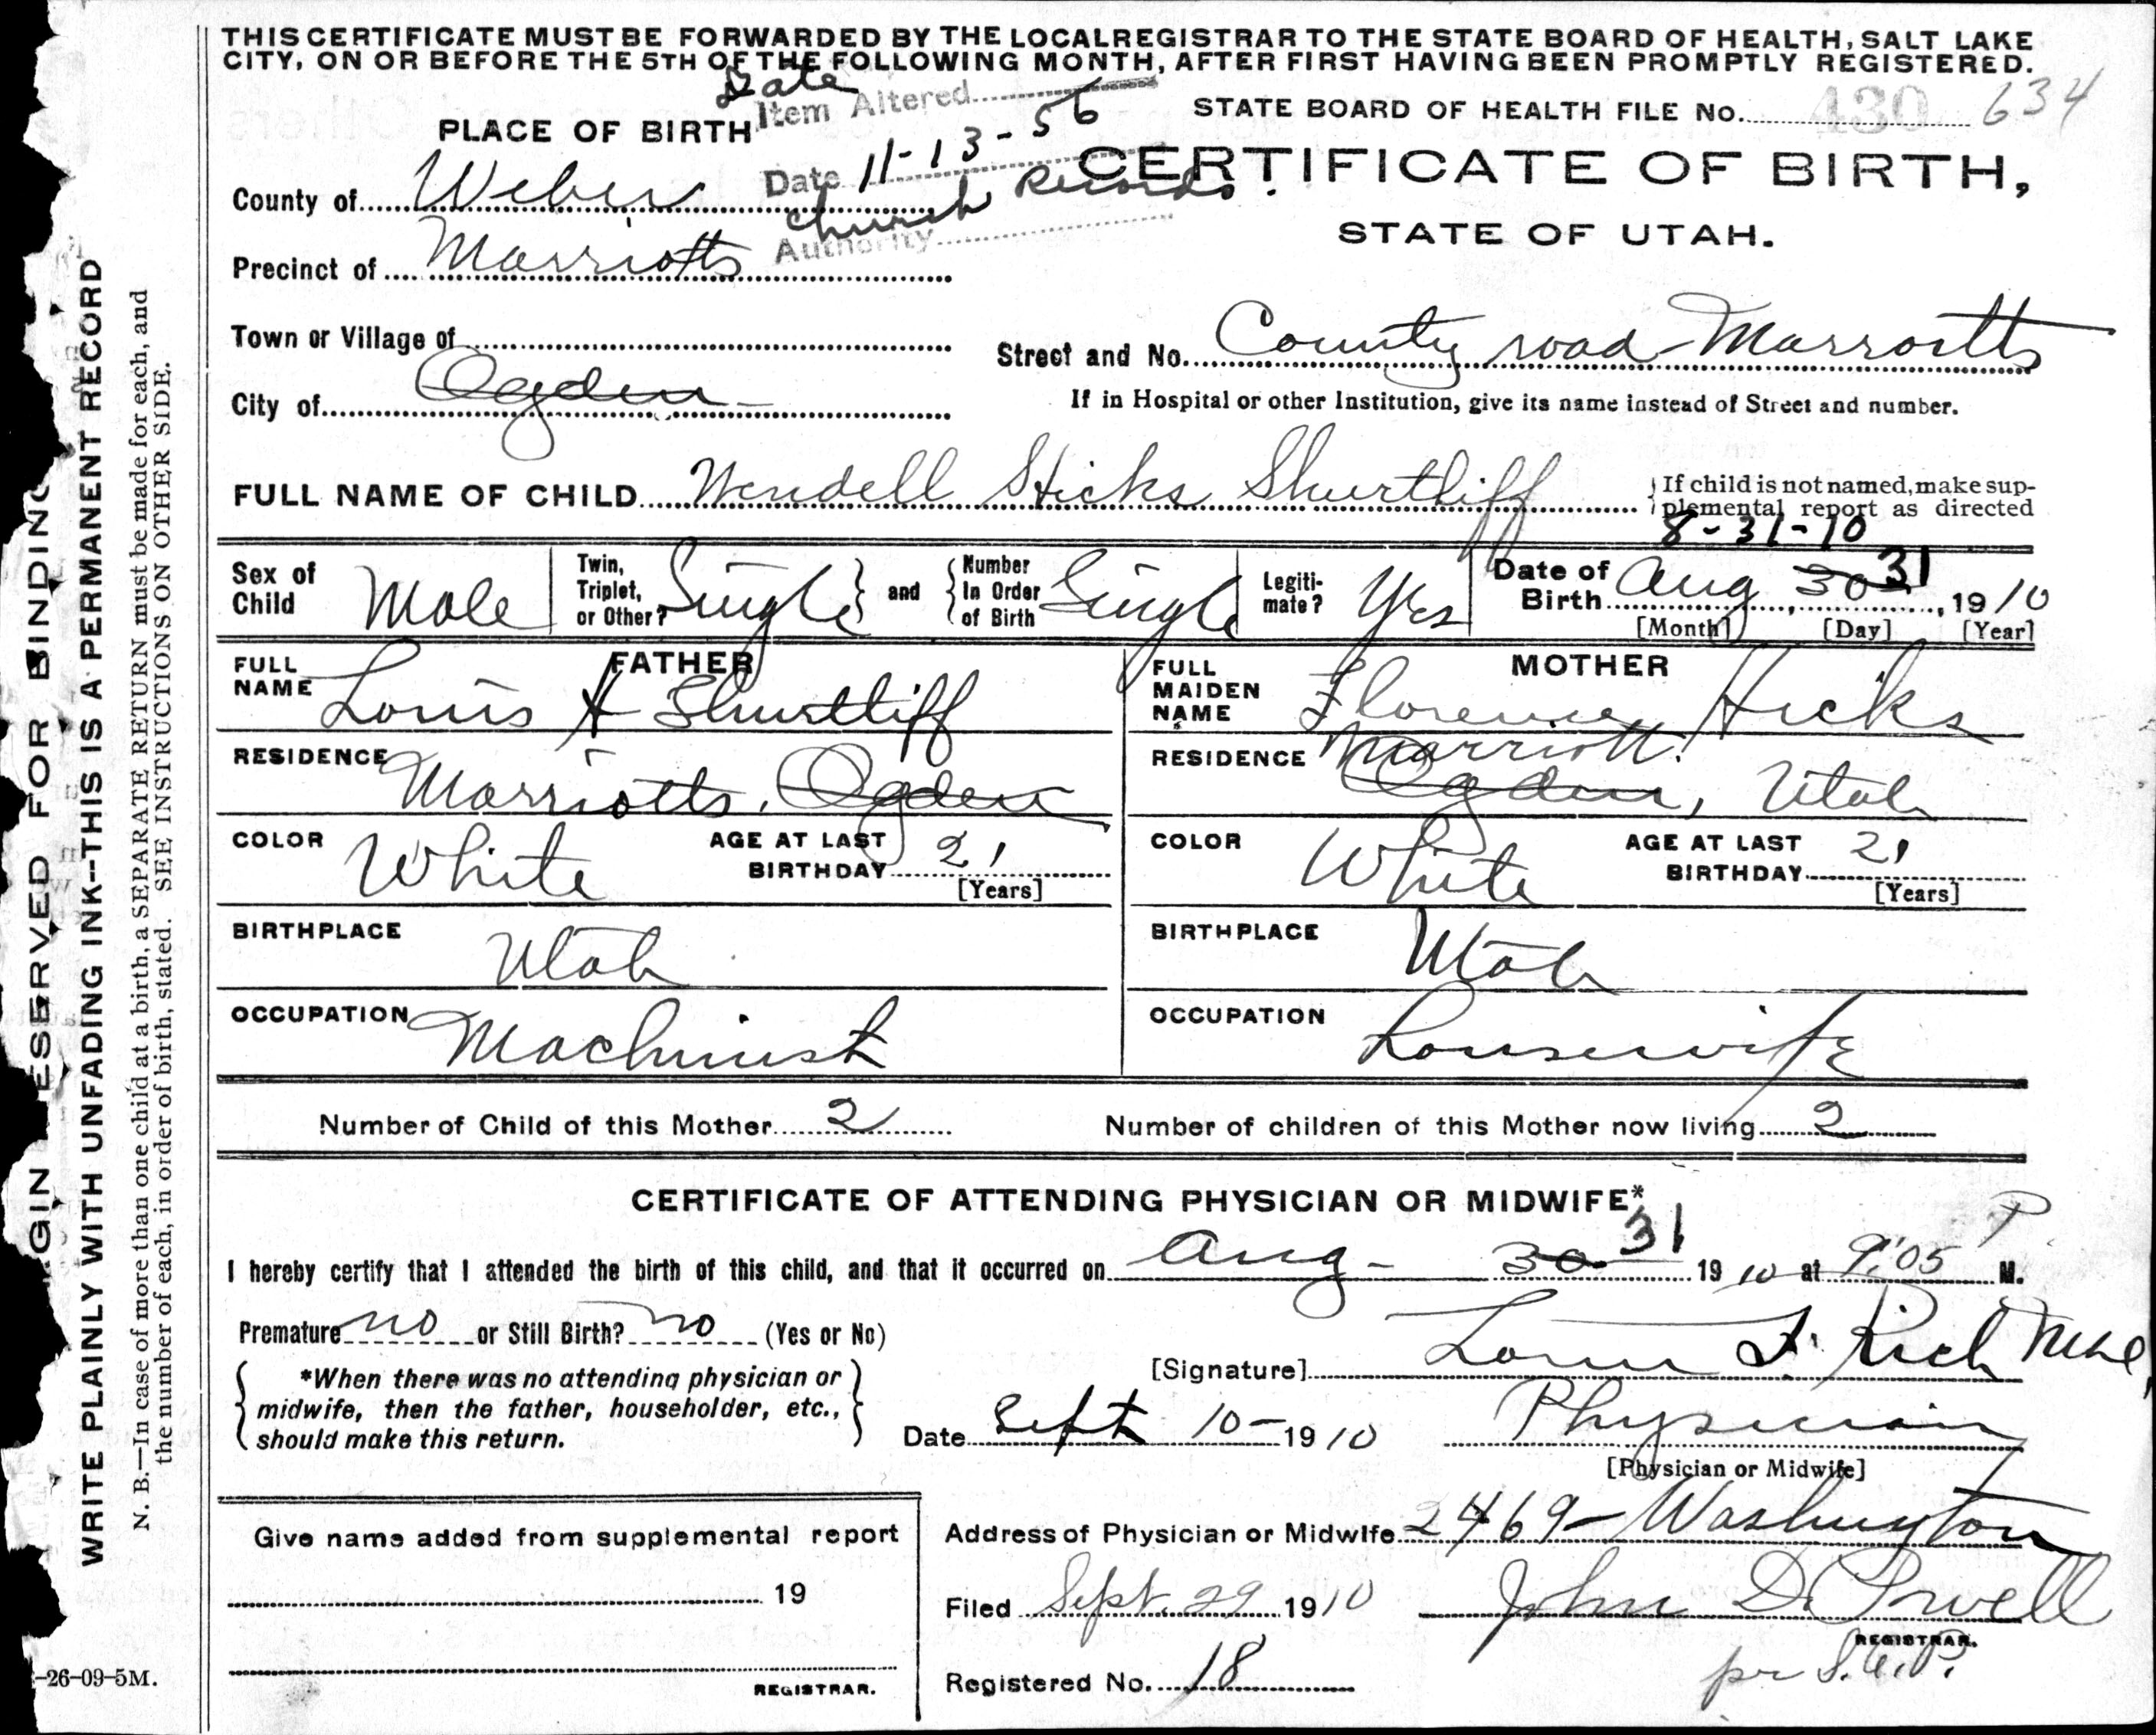 THIS CERTIFICATE MUST BE FORWARDED BY THE LOCAL REGISTRAR TO THE STATE BOARD OF HEALTH, SALT LAKE
CITY, ON OR BEFORE THE 5TH OF THE FOLLOWING MONTH, AFTER FIRST HAVING BEEN PROMPTLY REGISTERED.
Date
Item Altered
STATE BOARD OF HEALTH FILE No. 430 634
PLACE OF BIRTH
Date 11-13-56
CERTIFICATE OF BIRTH,
County of Weber
Church Records.
Authority
STATE OF UTAH.
Precinct of Marriotts
Town or Village of
Street and No. County road - Marriotts
City of Ogden
If in Hospital or other Institution, give its name instead of Street and number.
FULL NAME OF CHILD Wendell Hicks Shurtliff
If child is not named, make sup-
plemental report as directed
8-31-10
Sex of Child Male
Twin, Triplet, or Other? Single and Number In Order of Birth Single
Legiti-mate? Yes
Date of Birth Aug 30 31, 1910
[Month] [Day] [Year]
FATHER
FULL NAME Louis H Shurtliff
RESIDENCE Marriotts, Ogden
COLOR White AGE AT LAST BIRTHDAY 21
[Years]
BIRTHPLACE Utah
OCCUPATION Machinist
MOTHER
FULL MAIDEN NAME Florence Hicks
RESIDENCE Marriott.
Ogden, Utah
COLOR White AGE AT LAST BIRTHDAY 21
[Years]
BIRTHPLACE Utah
OCCUPATION housewife
Number of Child of this Mother 2 Number of children of this Mother now living 2
CERTIFICATE OF ATTENDING PHYSICIAN OR MIDWIFE*
I hereby certify that I attended the birth of this child, and that it occurred on Aug - 30 31 1910 at 9:05 P M.
Premature no or Still Birth? no (Yes or No)
*When there was no attending physician or
midwife, then the father, householder, etc.,
should make this return.
[Signature] F. Rich
Date Sept 10 - 1910
Physician
[Physician or Midwife]
Give name added from supplemental report
19
REGISTRAR.
Address of Physician or Midwife 2469 - Washington
Filed Sept. 29 1910 John D. Powell
REGISTRAR.
Registered No. 18
-26-09-5M.
GIN RESERVED FOR BINDING
WRITE PLAINLY WITH UNFADING INK--THIS IS A PERMANENT RECORD
N. B.—In case of more than one child at a birth, a SEPARATE RETURN must be made for each, and
the number of each, in order of birth, stated. SEE INSTRUCTIONS ON OTHER SIDE.